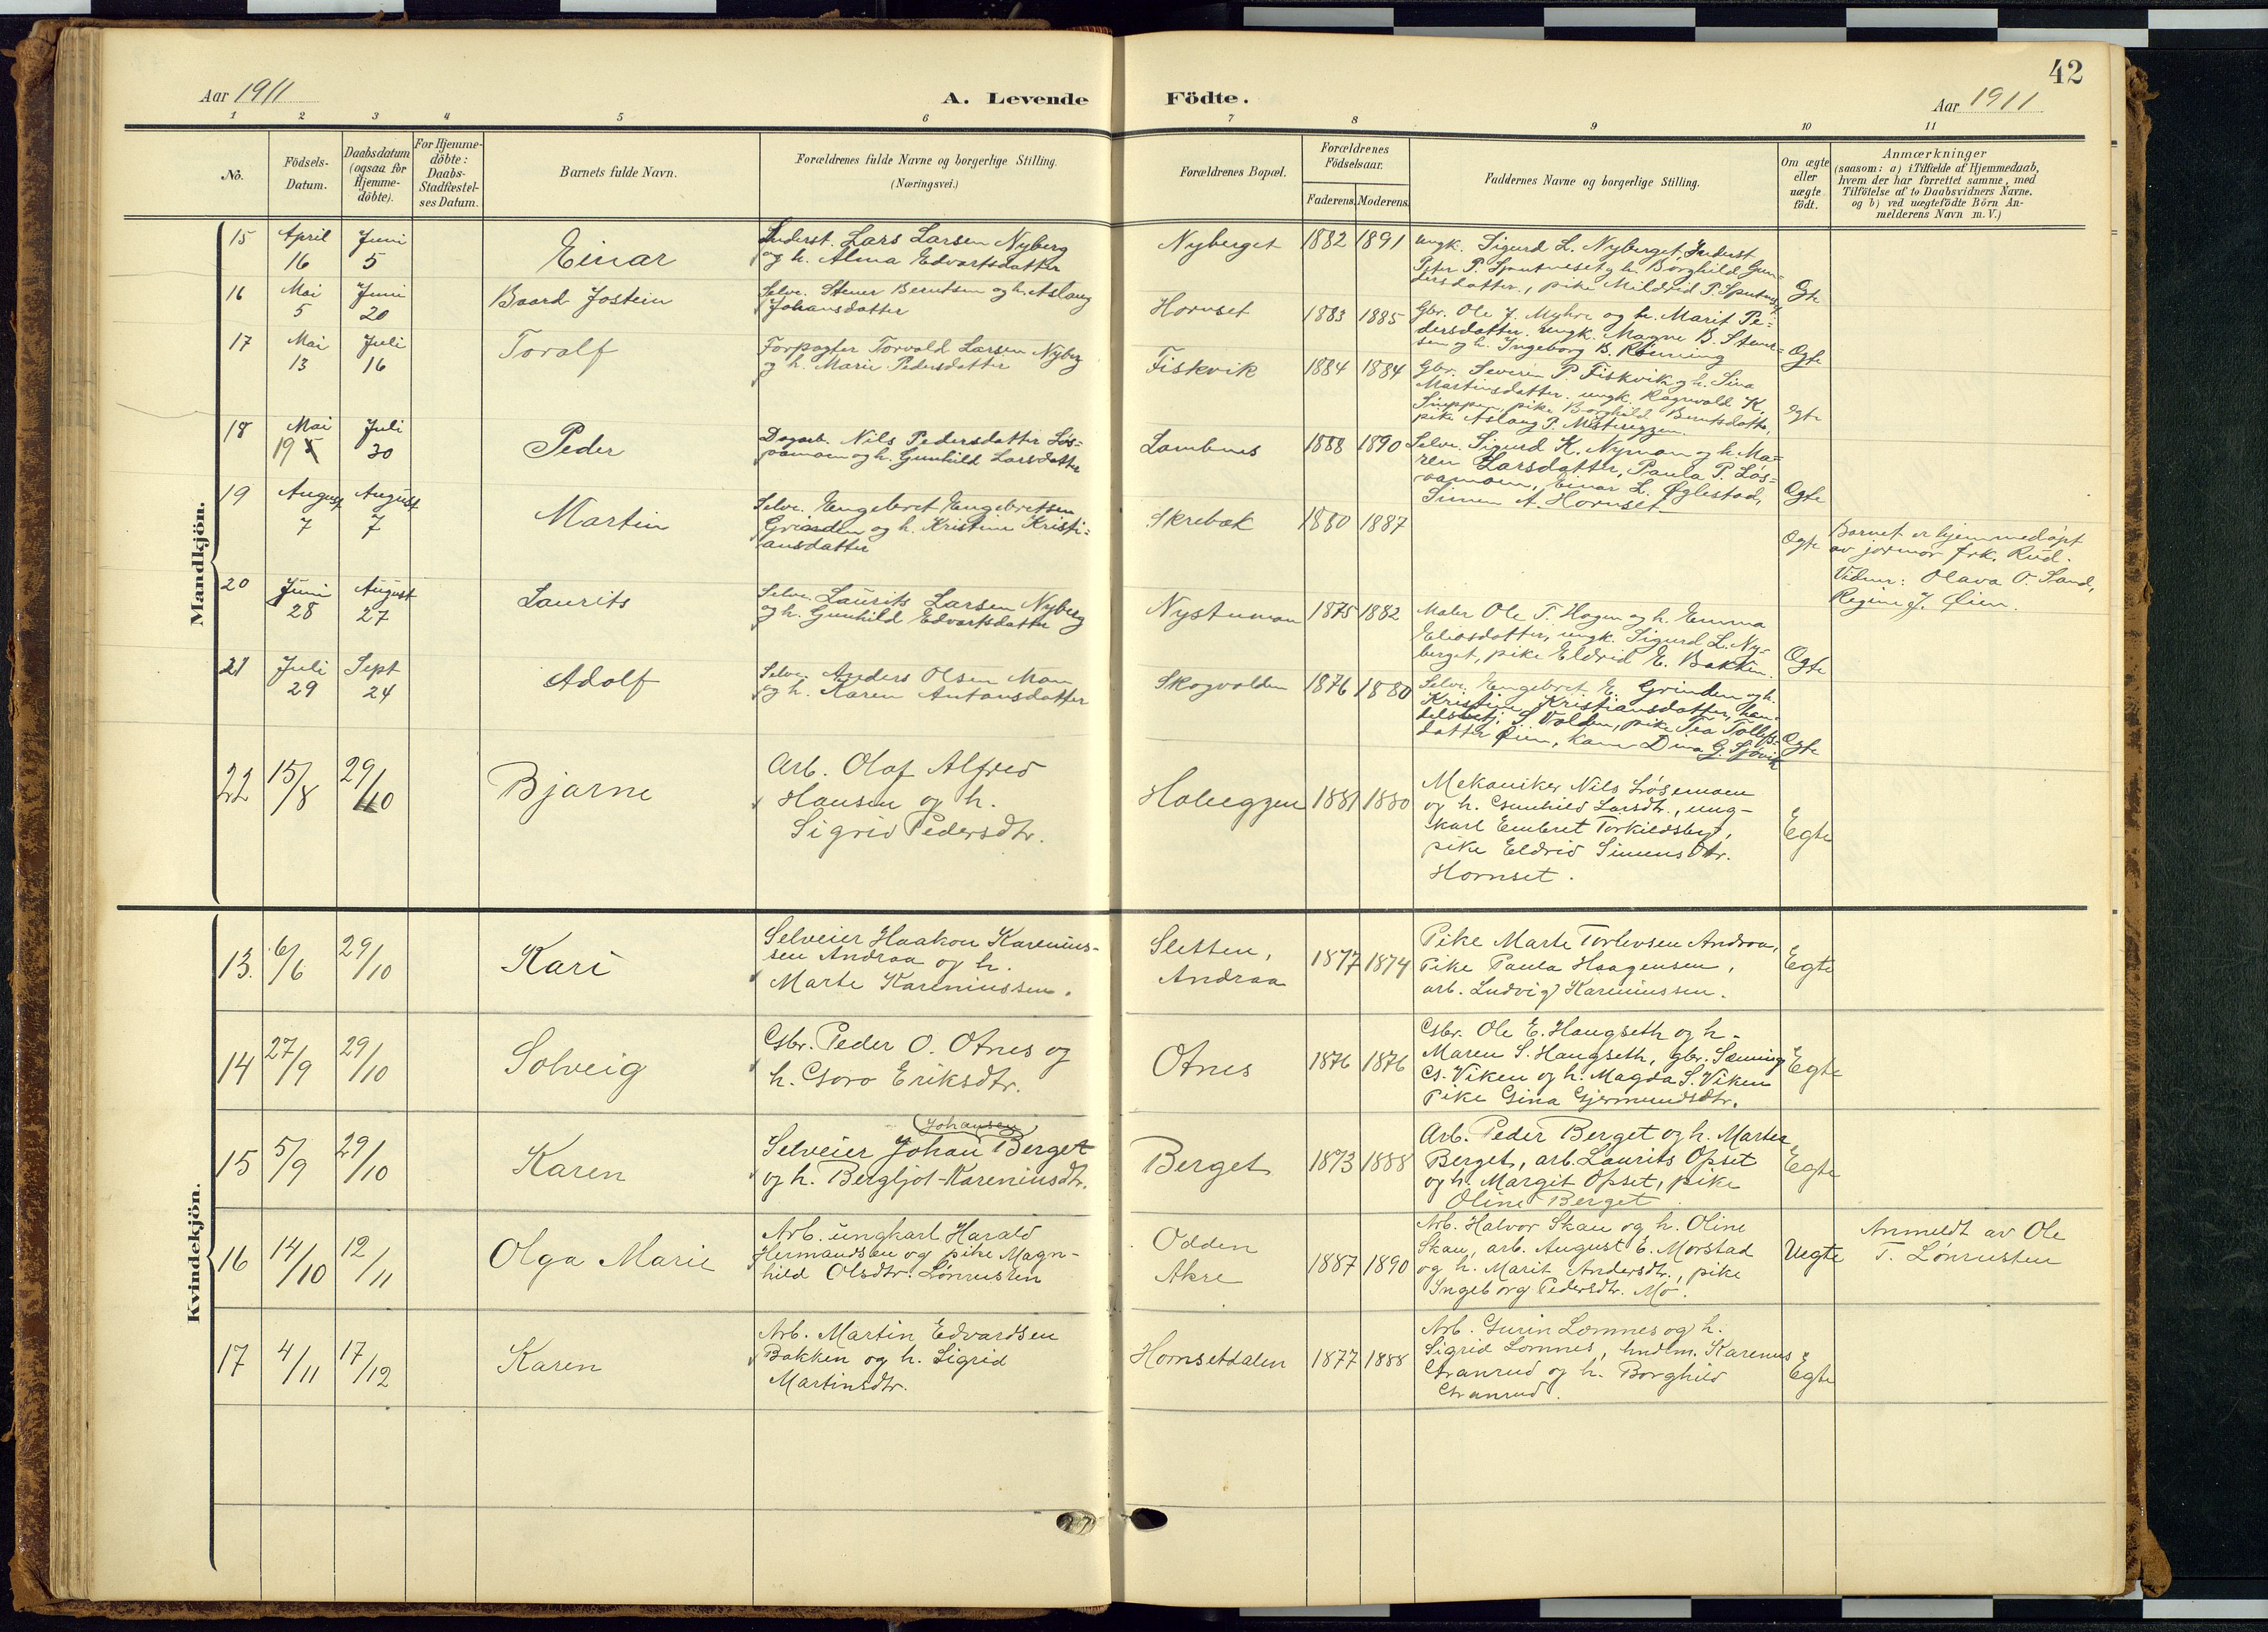 42
Aar 1911
A. Levende Födte.
Aar 1911
1 2 3 4 5 6 7 8 9 10 11
No.
Födsels-Datum.
Daabsdatum (ogsaa for Hjemmedöbte).
For Hjemmedöbte: Daabs-Stadfæstelses Datum.
Barnets fulde Navn.
Forældrenes fulde Navne og borgerlige Stilling.
(Næringsvei.)
Forældrenes Bopæl.
Forældrenes Födselsaar.
Faderens. Moderens.
Faddernes Navne og borgerlige Stilling.
Om ægte eller uægte födt.
Anmærkninger
(saasom: a) i Tilfælde af Hjemmedaab,
hvem der har forrettet samme, med
Tilföielse af to Daabsvidners Navne.
og b) ved uægtefödte Börn An-
melderens Navn m. V.)
Mandkjön.
15 April 16 Juni 5 Einar
Inderst. Lars Larsen Nyberg
og h. Alma Edvartsdatter
Nyberget 1882 1891
ungk. Sigurd L. Nyberget, Inderst
Peter P. Sputneset og h. Borghild Gun=
dersdatter, pike Mildrid P. Sputnes
Egte
16 Mai 5 Juni 20 Baard Jostein
Selve. Stener Berntsen og h. Aslaug
Johansdatter
Hornset 1883 1885
Gbr. Ole J. Myhre og h. Marit Pe=
dersdatter. ungk. Magne B. Stener=
sen og h. Ingeborg B. Rönning
Egte
17 Mai 13 Juli 16 Toralf
Forpagter Torvald Larsen Nyberg
og h. Marie Pedersdatter
Fiskvik 1884 1884
Gbr. Severin P. Fiskvik og h. Sina
Martinsdatter. ungk. Ragnvald K.
pike Borghild Berntsdatter,
pike Aslaug P. Mestereggen
Egte
18 Mai 19 Juli 30 Peder
Dagarb. Nils Pedersdatter Løs=
oamoen og h. Gunhild Larsdatter
Lombnes 1888 1890
Selve. Sigurd K. Nyman og h. Ma=
ren Larsdatter, Paula P. Løs=
oamoen, Einar L. Øglestad,
Simen A. Hornset
Egte
19 August 7 August 7 Martin
Selve. Engebret Engebretsen
Grinden og h. Kristine Kristi=
ansdatter
Skrebak 1880 1887
Egte
Barnet er hjemmedøpt
av jormor frk. Rud.
Vidner: Olava O. Sand,
Regine J. Øien.
20 Juni 28 August 27 Laurits
Selve. Laurits Larsen Nyberg
og h. Gunhild Edvartsdatter
Nystumoen 1875 1882
Maler Ole T. Hagen og h. Emma
Eliasdatter, ungk. Sigurd L. Ny-
berget, pike Eldrid E. Bakken.
Egte
21 Juli 29 Sept 24 Adolf
Selve. Anders Olsen Moen
og h. Karen Antonsdatter
Skogvolden 1876 1880
Selve. Engebret E. Grinden og h.
Kristine Kristiansdatter, han-
delsbetj. S. Volden, pike Tea Tollefs=
datter Øien, kone Dina G. Sjøvik
Egte
22 15/8 29/10 Bjarne
Arb. Olaf Alfred
Hansen og h.
Sigrid Pedersdtr.
Holeggen 1881 1880
Mekaniker Nils Løsemoen
og h. Gunhild Larsdtr., ung-
karl Embret Torkildsberg,
pike Eldrid Simensdtr.
Hornset.
Egte
Kvindekjön.
13. 6/6 29/10 Kari
Selveier Haakon Karenius-
sen Andraa og h.
Marte Kareniussen.
Sletten,
Andraa
1877 1874
Pike Marte Torlevsen Andraa,
Pike Paula Haagensen,
arb. Ludvig Kareniussen.
Egte
14 27/9 29/10 Solveig
Gbr. Peder O. Otnes og
h. Goro Eriksdtr.
Otnes 1876 1876
Gbr. Ole E. Haugseth og h.
Maren S. Haugseth, gbr. Sæming
G. Viken og h. Magda S. Viken
Pike Gina Gjermundsdtr.
Egte
15 5/9 29/10 Karen
Johansen
Selveier Johan Berget
og h. Bergljot Kareniusdtr.
Berget 1873 1888
Arb. Peder Berget og h. Marte
Berget, arb. Laurits Opset
og h. Margit Opset, pike
Oline Berget
Egte
16 14/10 12/11 Olga Marie
Arb. ungkarl Harald
Hermandsen og pike Magn-
hild Olsdtr. Lönrusten
Odden
Akre
1887 1890
Arb. Halvor Skau og h. Oline
Skau, arb. August E. Morstad
og h. Marit Andersdtr., pike
Ingeborg Pedersdtr. Mo.
Uegte
Anmeldt av Ole
T. Lönrusten
17 4/11 17/12 Karen
Arb. Martin Edvardsen
Bakken og h. Sigrid
Martinsdtr.
Hornsetdalen 1877 1888
Arb. Gurin Lomnes og h.
Sigrid Lomnes, hndlm. Karenus
Granrud og h. Borghild
Granrud.
Egte